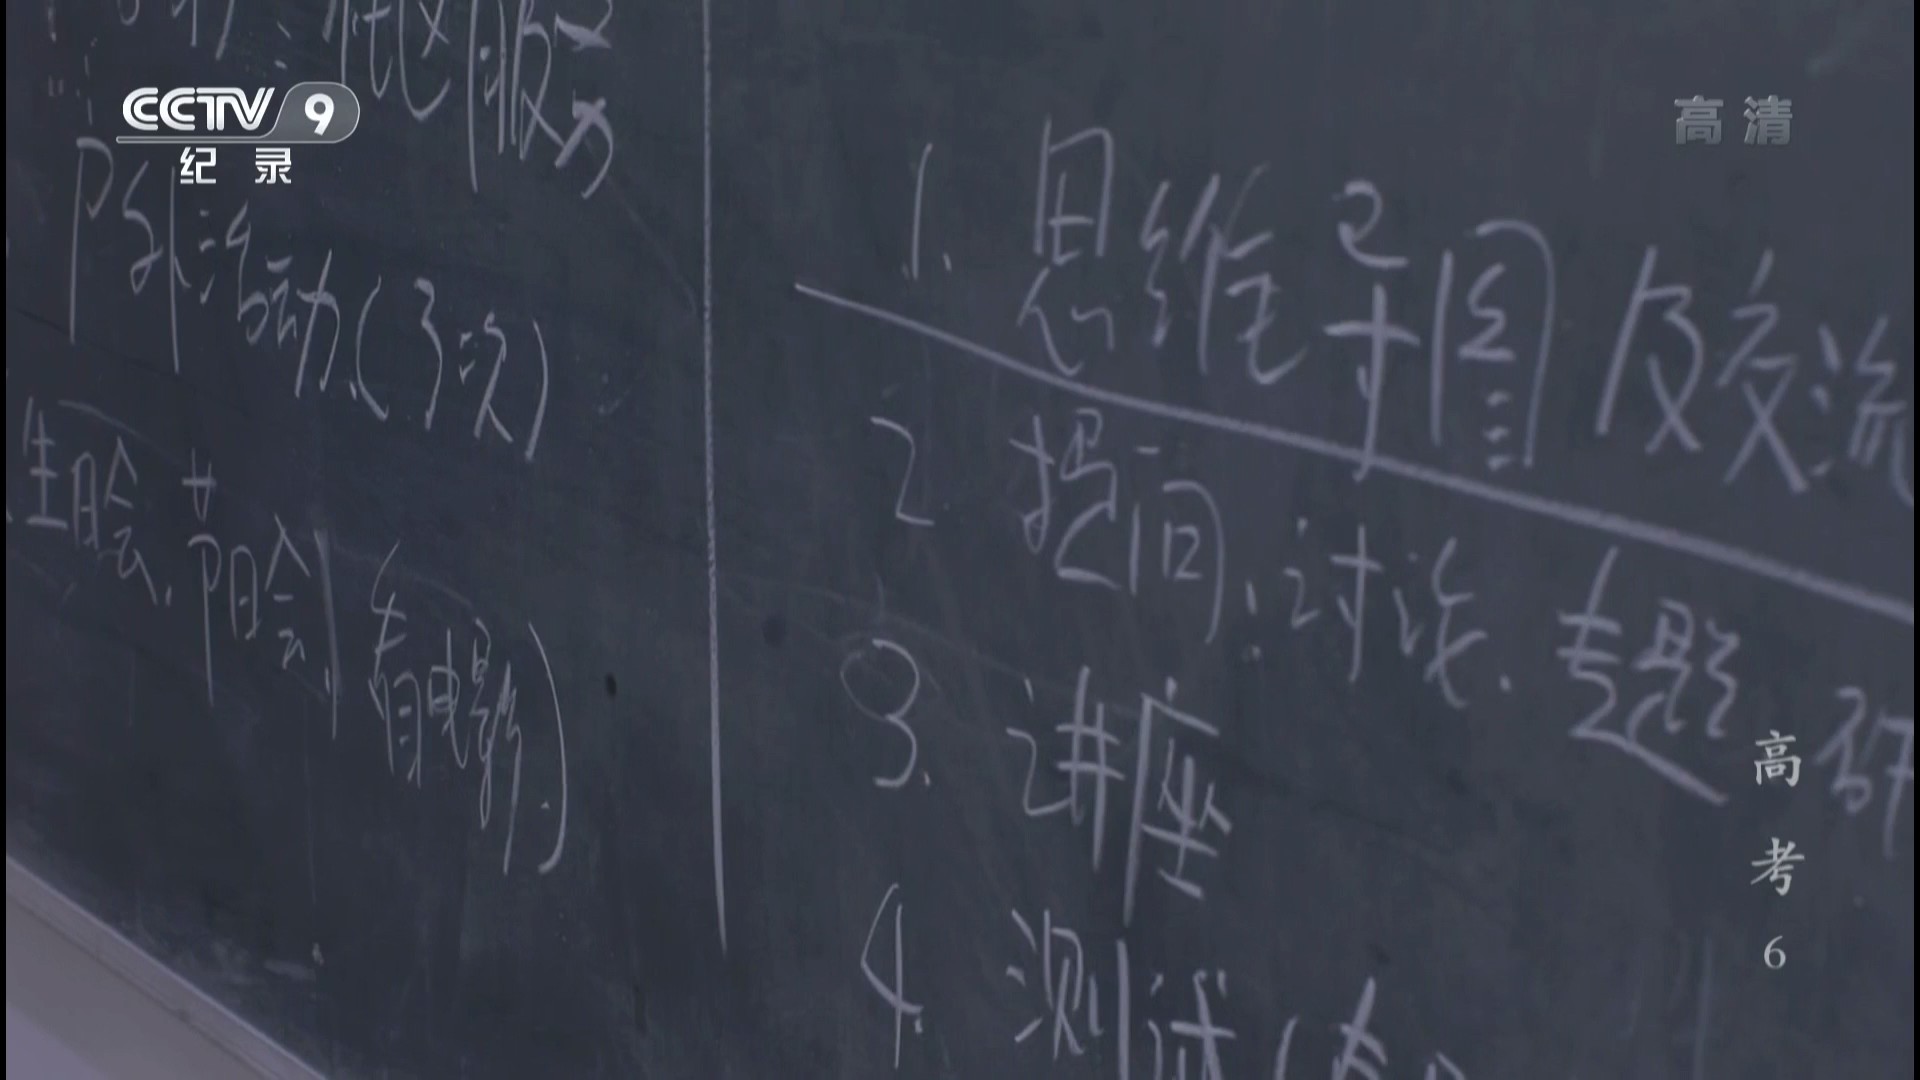 CCTV 9
纪录
高清
服务
户外活动(3次)
生日会、节日会 看电影)
1. 思维导图及交流
2. 提问、讨论、专题研
3. 讲座
4. 测试(
高考6